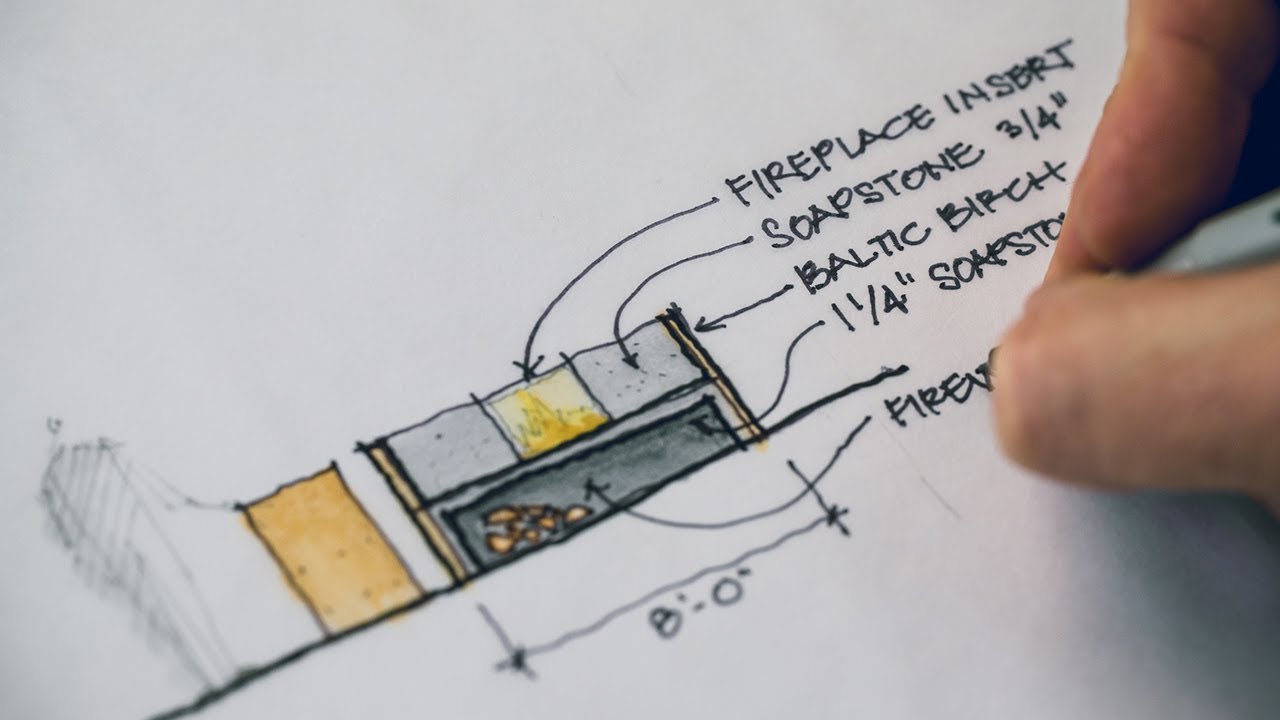 FIREPLACE INSERT
SOAPSTONE 3/4"
BALTIC BIRCH
1 1/4" SOAPSTO
FIREW
8'-0"